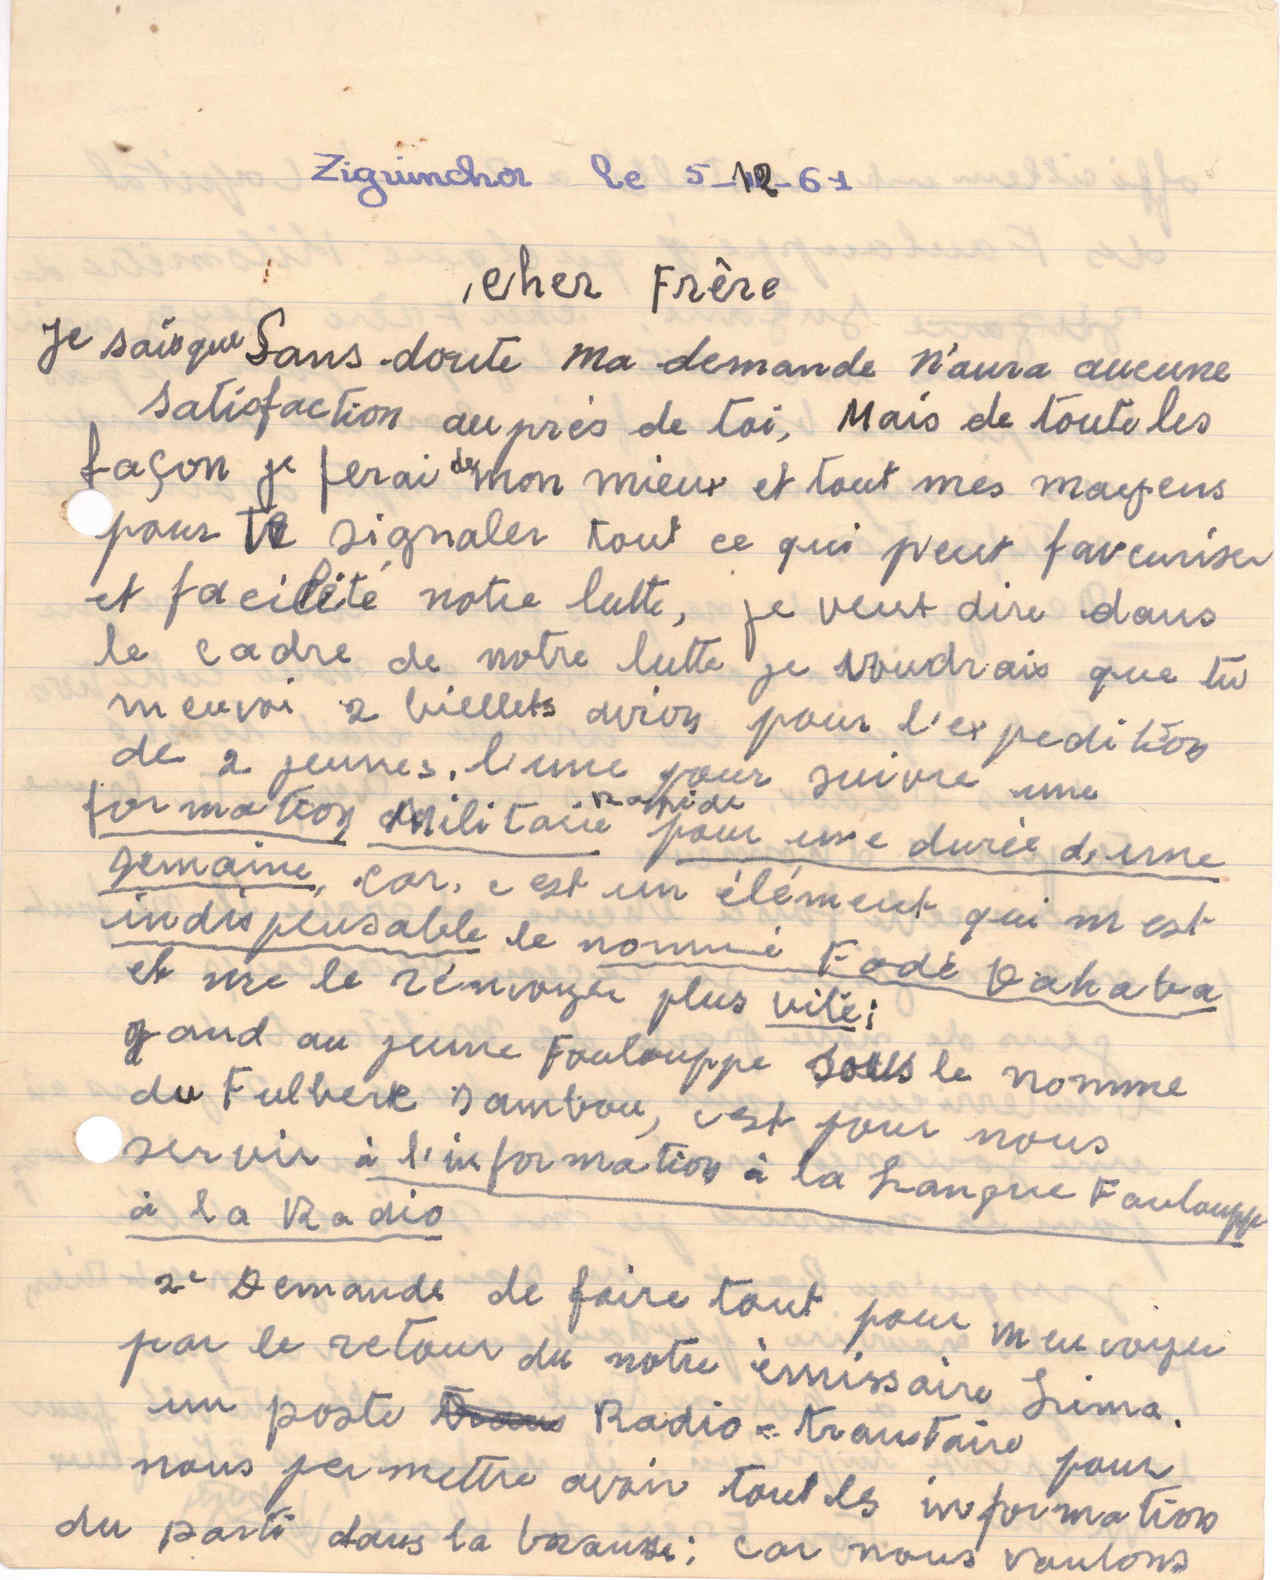 Ziguinchor le 5-12-61
Cher Frère
Je sais que Sans doute ma demande n'aura aucune
satisfaction auprès de toi, Mais de toute les
façon je ferai de mon mieux et tout mes moyens
pour te signaler tout ce qui peut favouriser
et facilité notre lutte, je veut dire dans
le cadre de notre lutte je voudrais que tu
m'envoi 2 biellets avion pour l'expedition
de 2 jeunes, l'une pour suivre une
formation Militaire Rapide pour une durée d'une
semaine, car, c'est un élément qui m'est
indispensable le nommé Fodé Dahaba
et me le rénvoyer plus vite;
qand au jeune Foulouppe sous le nomme
du Fulbert Sambou, c'est pour nous
servir à l'information à la Langue Fouloupe
à la Radio
2e Demande de faire tout pour m'envoyer
par le retour du notre émissaire Lima.
un poste Radio = transtaire pour
nous permettre avoir tout les information
du parti dans la brausse; car nous voulons